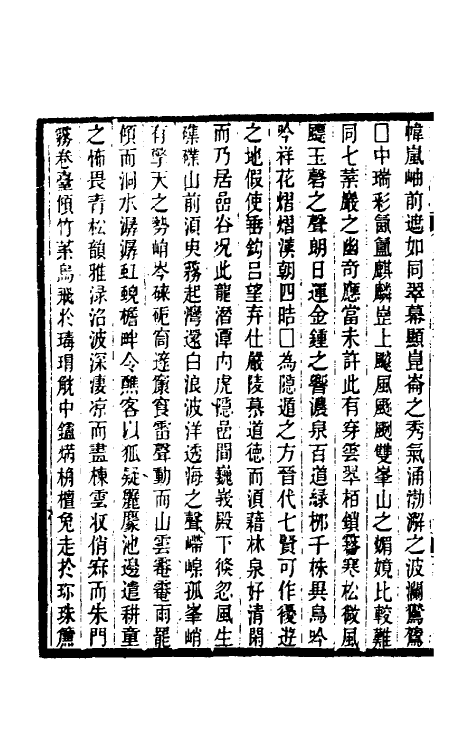 幃嵐岫前遮如同翠幕顯崑崙之秀氣涌渤澥之波瀾鴛鴦
□中瑞彩氤氳麒麟崑上颼風颼颼雙峯山之媚境比較難
同七葉巖之幽奇應當未許此有穿雲翠栢鎖霧寒松微風
颸玉磬之聲朗日運金鍾之響濃泉百道綠柳千株異鳥吟
吟祥花熠熠漢朝四皓□為隱遁之方晉代七賢可作優遊
之地假使垂鈎呂望弃仕嚴陵慕道德而湏藉林泉好清閑
而乃居嵒谷况此龍潛潭內虎隱嵒間巍峩殿下倐忽風生
磼磼山前湏臾霧起灣還白浪波洋透海之聲嶀嵲孤峯峭
有擎天之勢峭岑硉砈窗邃䉤食雷聲動而山雲靉靉雨罷
傾而洞水潺潺虹蜺檐畔令醮客以狐疑麗麇池邊遣耕童
之怖畏青松韻雅渌沼波深凄凉而畫棟雲收俏寂而朱門
霧卷臺傾竹葉烏飛於璹瑁觥中鑪爇栴檀兔走於珎珠簾